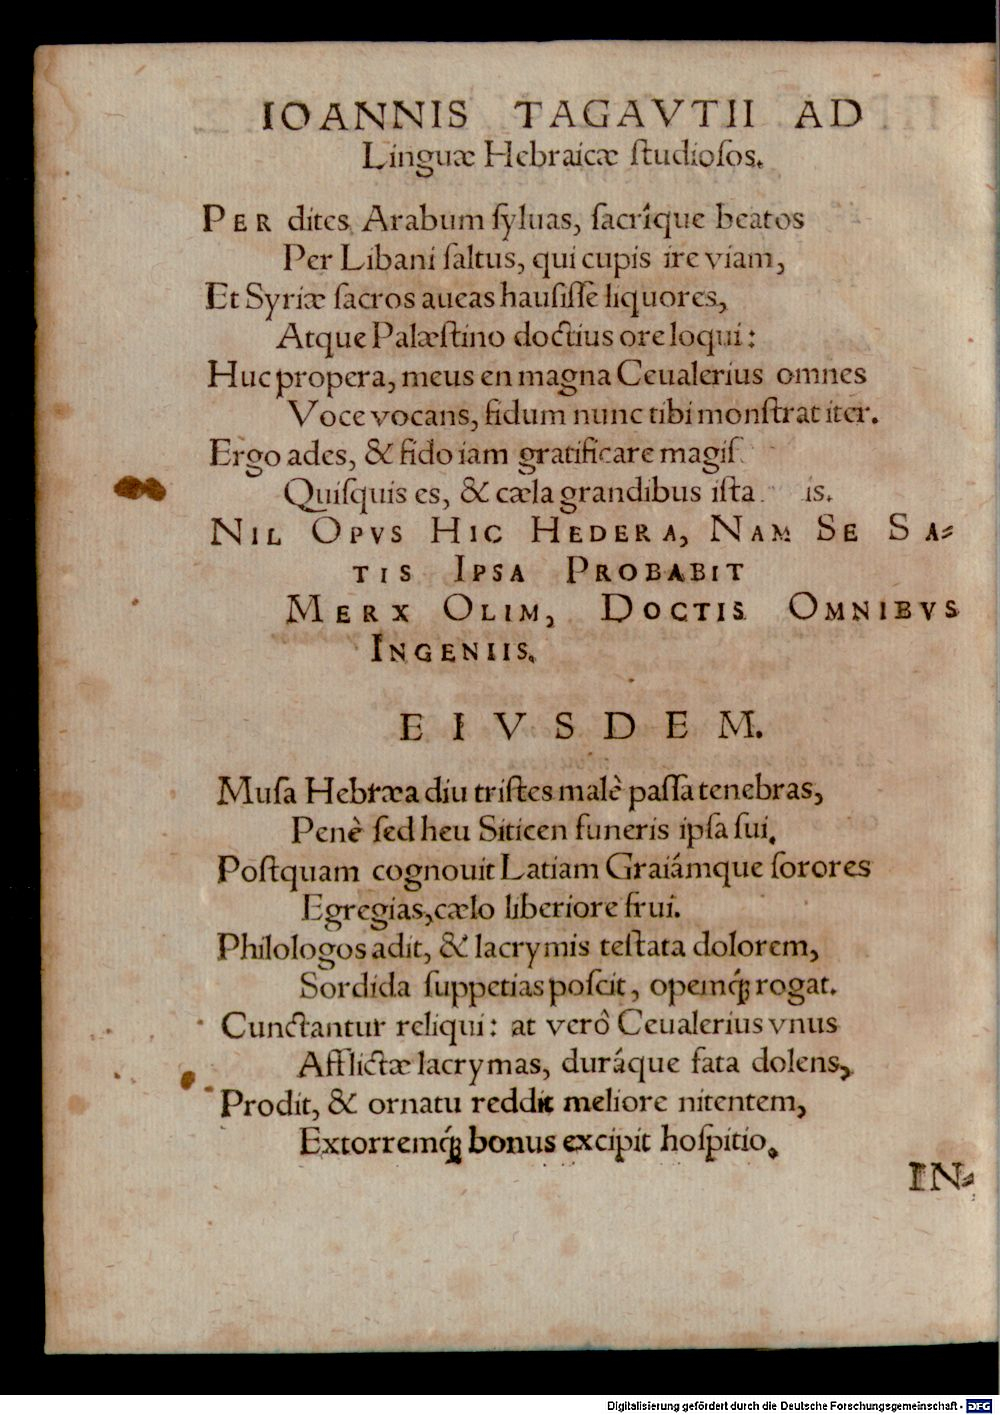 IOANNIS TAGAVTII AD
Linguæ Hebraicæ ſtudioſos.
PER dites Arabum ſyluas, ſacríque beatos
Per Libani ſaltus, qui cupis ire viam,
Et Syriæ ſacros aueas hauſiſſe liquores,
Atque Palæſtino doctius ore loqui:
Huc propera, meus en magna Ceualerius omnes
Voce vocans, fidum nunc tibi monſtrat iter.
Ergo ades, & fido iam gratificare
Quiſquis es, & cæla grandibus
NIL OPVS HIC HEDERA, NAM SE SA-
TIS IPSA PROBABIT
MERX OLIM, DOCTIS OMNIBVS
INGENIIS.
EIVSDEM.
Muſa Hebræa diu triſtes malè paſſa tenebras,
Penè ſed heu Siticen funeris ipſa ſui.
Poſtquam cognouit Latiam Graiámque ſorores
Egregias, cælo liberiore frui.
Philologos adit, & lacrymis teſtata dolorem,
Sordida ſuppetias poſcit, opemq́; rogat.
Cunctantur reliqui: at verò Ceualerius vnus
Afflictæ lacrymas, duráque fata dolens,
Prodit, & ornatu reddit meliore nitentem,
Extorremq́; bonus excipit hoſpitio.
IN-
Digitalisierung gefördert durch die Deutsche Forschungsgemeinschaft - DFG